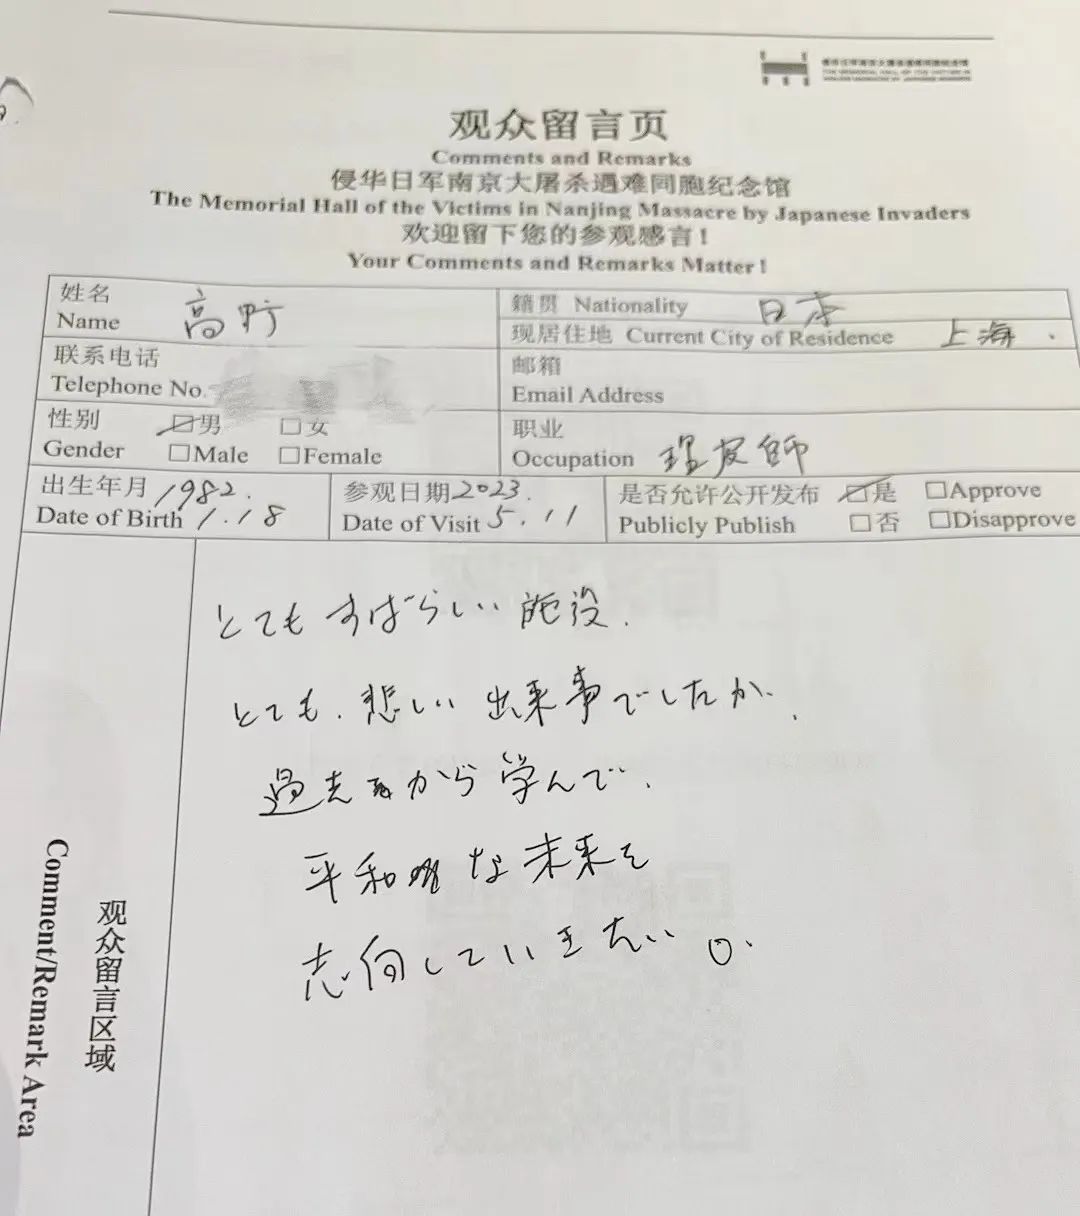 观众留言页
Comments and Remarks
侵华日军南京大屠杀遇难同胞纪念馆
The Memorial Hall of the Victims in Nanjing Massacre by Japanese Invaders
欢迎留下您的参观感言！
Your Comments and Remarks Matter！
姓名 Name 高野
籍贯 Nationality 日本
现居住地 Current City of Residence 上海.
联系电话 Telephone No.
邮箱 Email Address
性别 Gender ☑男 □女
□Male □Female
职业 Occupation 師
出生年月 Date of Birth 1982. 1.18
参观日期 Date of Visit 2023. 5.11
是否允许公开发布 Publicly Publish ☑是 □Approve
□否 □Disapprove
观众留言区域
Comment/Remark Area
とてもすばらしい施設.
とても.悲しい出来事でしたが.
過去から学んで.
平和な未来を
志向していきたい。.